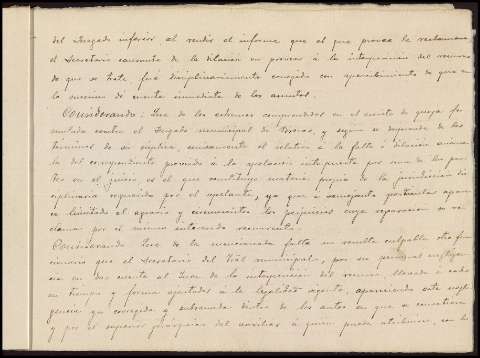 del Juzgado inferior al rendir el informe que el que provee le reclamara
el Secretario causante de la dilación en proveer á la interposición del recurso
de que se trata, fué disciplinariamente corregido con apercibimiento de que en
lo sucesivo dé cuenta inmediata de los asuntos.
Considerando: Que de los extremos comprendidos en el escrito de queja for
mulado contra el Juzgado municipal de y según se desprende de los
términos de su súplica, únicamente el relativo á la falta ó dilación
del correspondiente proveído á la apelación interpuesta por una de las par
tes en el juicio, es el que constituye materia propia de la jurisdicción dis
ciplinaria requerida por el apelante, ya que á semejante particular apare
ce limitado el agravio y los perjuicios cuya reparacion se re
clama por el mismo interesado recurrente.
Considerando: Que de la mencionada falta no resulta culpable otro fun
cionario que el Secretario del Tral municipal, por su personal negligen
cia en dar cuenta al Juez de la interposición del recurso, llevada á cabo
en tiempo y forma ajustados á la legalidad vigente, apareciendo esta negli
gencia ya corregida y subsanada dentro de los autos en que se cometiera
y por el superior gerárquico del auxiliar á quien puede atribuirse, con lo